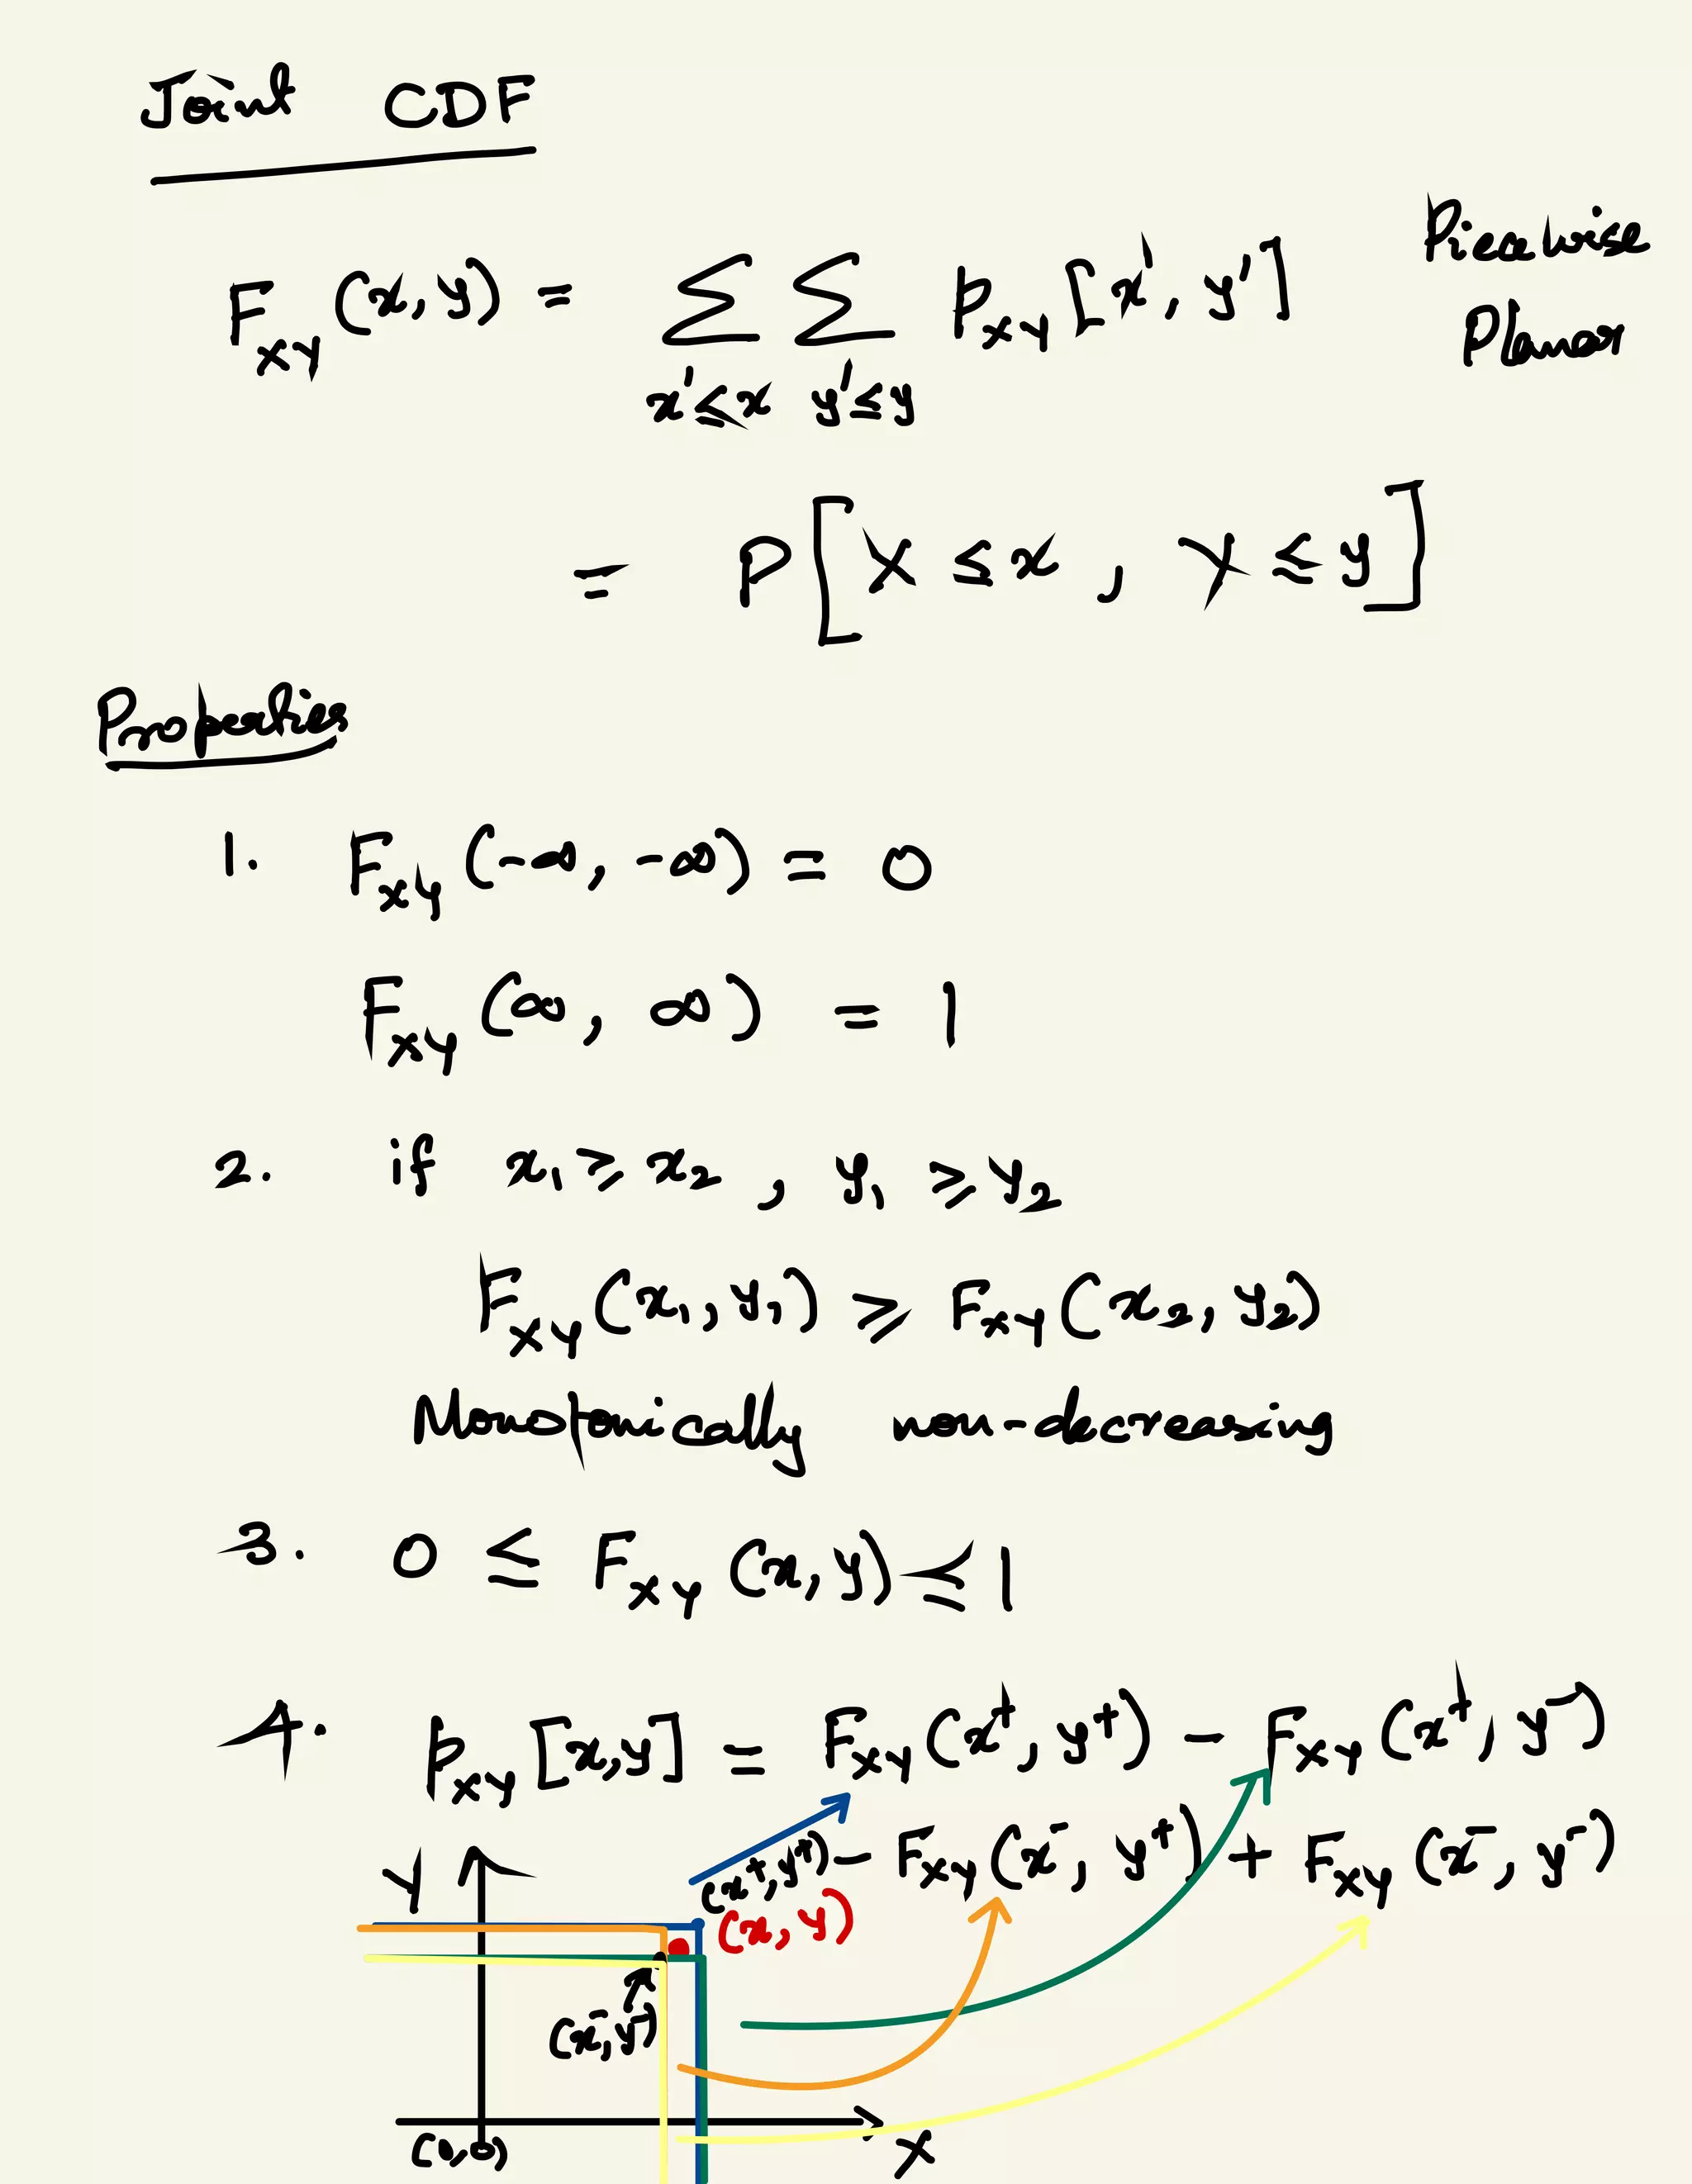 Joint CDF
Piecewise
Planar
F_XY (x, y) = Σ Σ p_XY [x', y']
x' ≤ x y' ≤ y
= P[X ≤ x , Y ≤ y]
Properties
1. F_XY (-∞, -∞) = 0
F_XY (∞, ∞) = 1
2. if x₁ ≥ x₂ , y₁ ≥ y₂
F_XY (x₁, y₁) ≥ F_XY (x₂, y₂)
Monotonically non-decreasing
3. 0 ≤ F_XY (x, y) ≤ 1
4. p_XY [x,y] = F_XY (x⁺, y⁺) - F_XY (x⁺, y⁻)
- F_XY (x⁻, y⁺) + F_XY (x⁻, y⁻)
Y
(x⁺, y⁺)
(x, y)
(x⁻, y⁻)
(0,0)
X